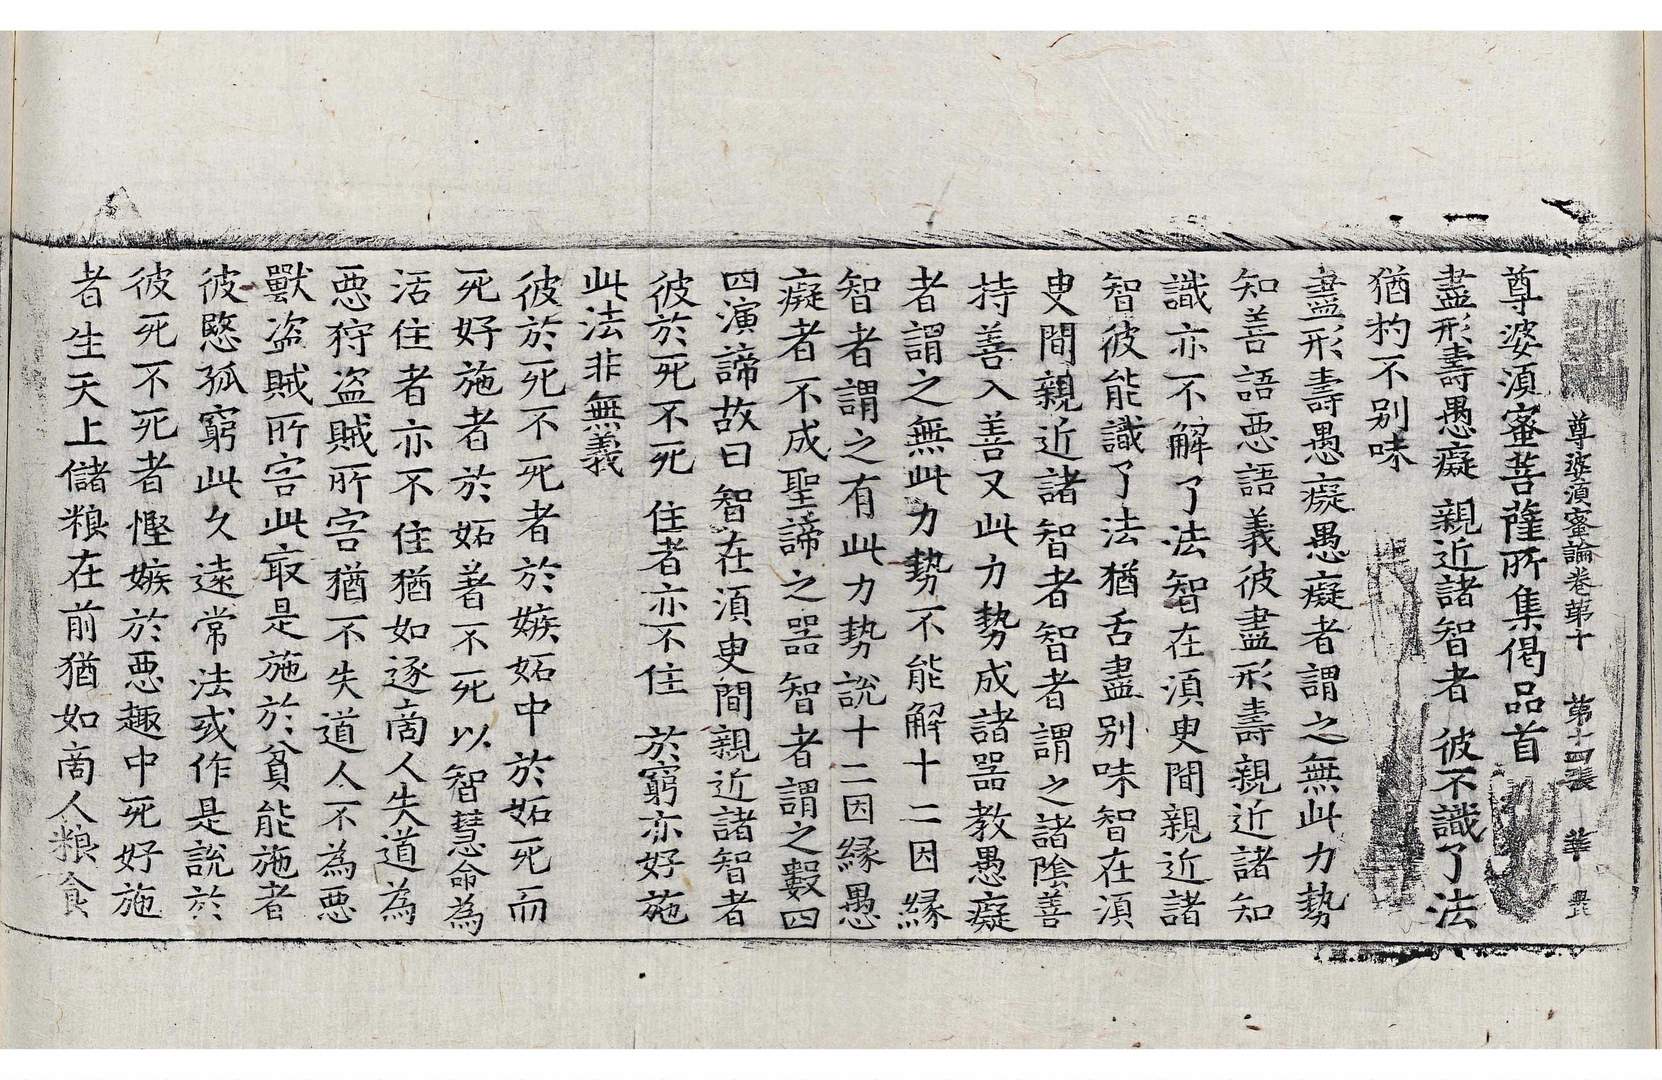 尊婆須蜜論卷第十　第十四張　華
尊婆須蜜菩薩所集偈品首
盡形壽愚癡　親近諸智者　彼不識了法
猶杓不别味
盡形壽愚癡愚癡者謂之無此力勢
知善語惡語義彼盡形壽親近諸知
識亦不解了法智在須臾間親近諸
智彼能識了法猶舌盡别味智在須
臾間親近諸智者智者謂之諸陰善
持善入善又此力勢成諸器教愚癡
者謂之無此力勢不能解十二因縁
智者謂之有此力勢說十二因縁愚
癡者不成聖諦之器智者謂之數四
四演諦故曰智在須臾間親近諸智者
彼於死不死　住者亦不住　於窮亦好施
此法非無義
彼於死不死者於嫉妬中於妬死而
死好施者於妬著不死以智慧命為
活住者亦不住猶如逐商人失道為
惡狩盜賊所害猶不失道人不為惡
獸盜賊所害此最是施於貧能施者
彼愍孤窮此久遠常法或作是說於
彼死不死者慳嫉於惡趣中死好施
者生天上儲粮在前猶如商人粮食